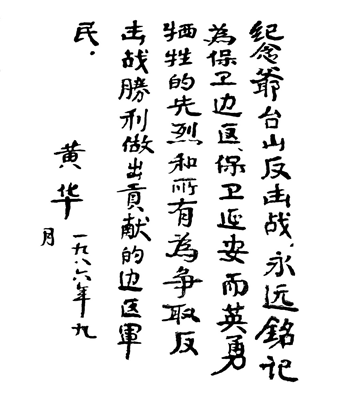 纪念爺台山反击战，永远銘记
為保卫边区、保卫延安而英勇
牺牲的先烈和所有為争取反
击战勝利做出貢献的边区軍
民．
黄华
一九八六年九
月